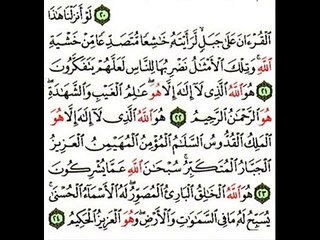 ٢٠ لَوْ أَنزَلْنَا هَـٰذَا
ٱلْقُرْءَانَ عَلَىٰ جَبَلٍ لَّرَأَيْتَهُۥ خَـٰشِعًا مُّتَصَدِّعًا مِّنْ خَشْيَةِ
ٱللَّهِ ۚ وَتِلْكَ ٱلْأَمْثَـٰلُ نَضْرِبُهَا لِلنَّاسِ لَعَلَّهُمْ يَتَفَكَّرُونَ
٢١ هُوَ ٱللَّهُ ٱلَّذِى لَآ إِلَـٰهَ إِلَّا هُوَ ۖ عَـٰلِمُ ٱلْغَيْبِ وَٱلشَّهَـٰدَةِ ۖ
هُوَ ٱلرَّحْمَـٰنُ ٱلرَّحِيمُ ٢٢ هُوَ ٱللَّهُ ٱلَّذِى لَآ إِلَـٰهَ إِلَّا هُوَ
ٱلْمَلِكُ ٱلْقُدُّوسُ ٱلسَّلَـٰمُ ٱلْمُؤْمِنُ ٱلْمُهَيْمِنُ ٱلْعَزِيزُ
ٱلْجَبَّارُ ٱلْمُتَكَبِّرُ ۚ سُبْحَـٰنَ ٱللَّهِ عَمَّا يُشْرِكُونَ
٢٣ هُوَ ٱللَّهُ ٱلْخَـٰلِقُ ٱلْبَارِئُ ٱلْمُصَوِّرُ ۖ لَهُ ٱلْأَسْمَآءُ ٱلْحُسْنَىٰ ۚ
يُسَبِّحُ لَهُۥ مَا فِى ٱلسَّمَـٰوَٰتِ وَٱلْأَرْضِ ۖ وَهُوَ ٱلْعَزِيزُ ٱلْحَكِيمُ ٢٤